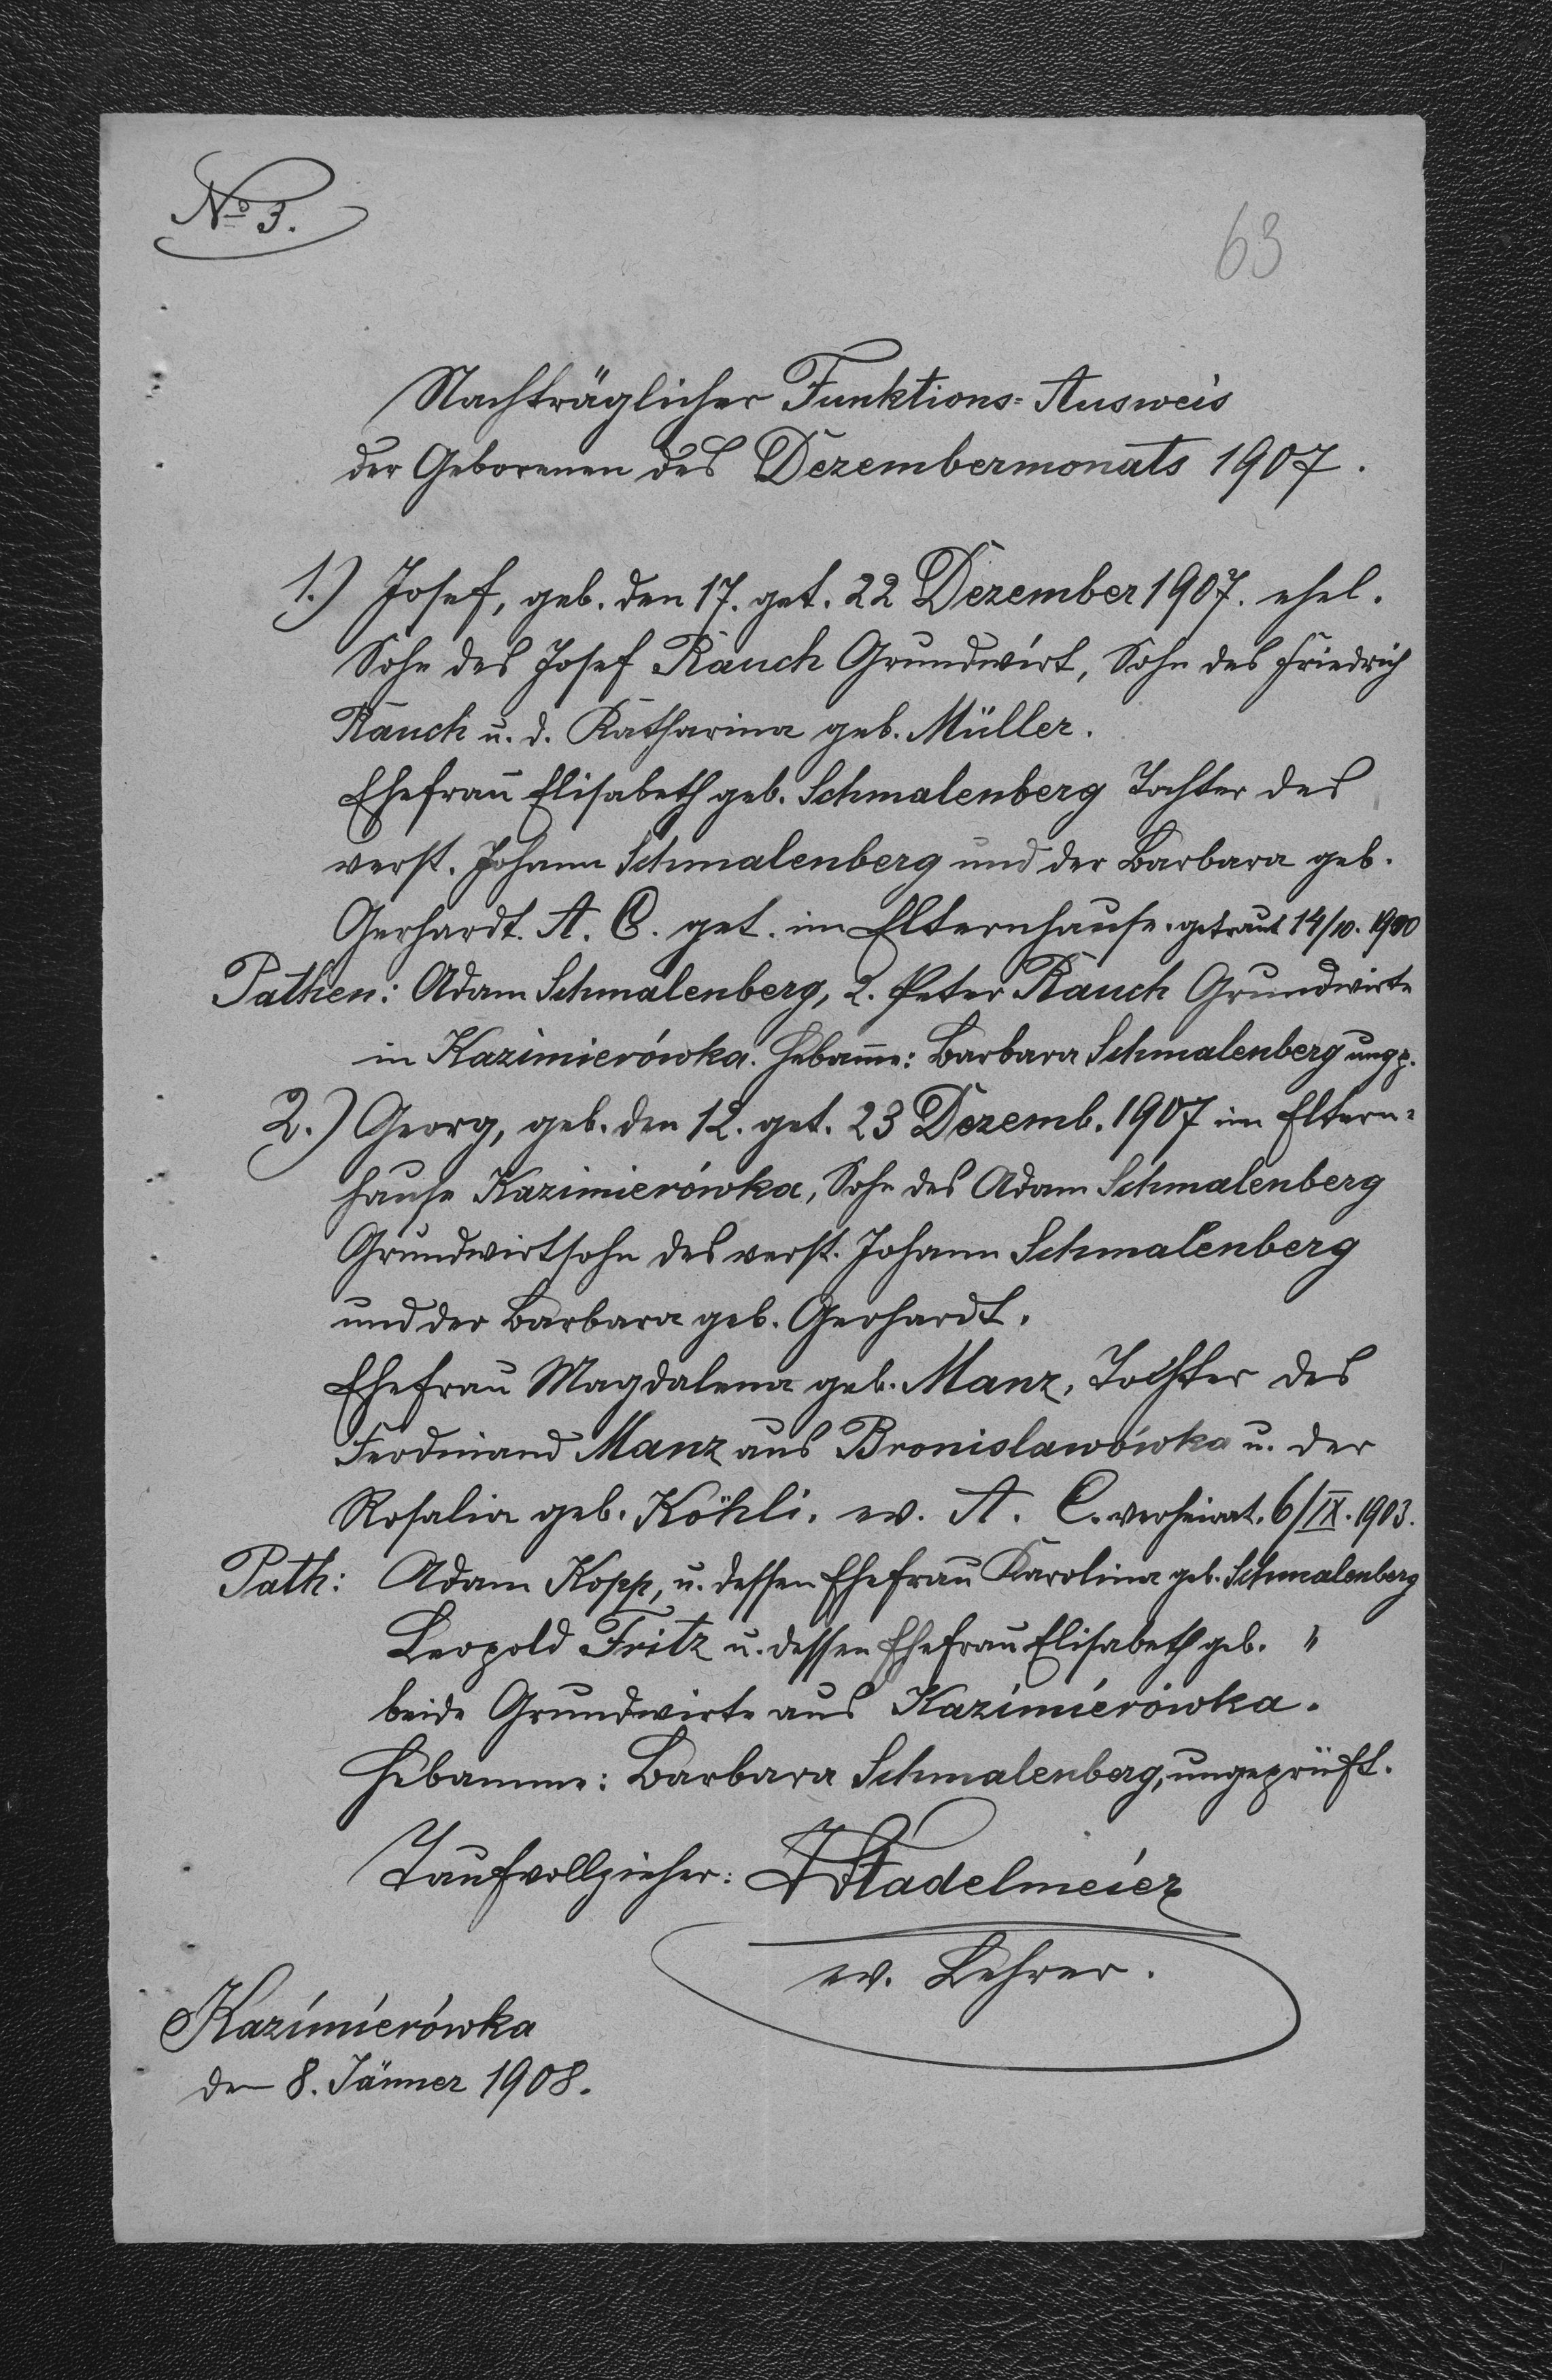 No 3.
63
Nachträglicher Funktions-Ausweis
der Geborenen des Dezembermonats 1907.
1.) Josef, geb. den 17. get. 22 Dezember 1907. ehel.
Sohn des Josef Rauch Grundwirt, Sohn des Friedrich
Rauch u. d. Katharina geb. Müller.
Ehefrau Elisabeth geb. Schmalenberg Tochter des
verst. Johann Schmalenberg und der Barbara geb.
Gerhardt. A. C. get. im Elternhause. getraut 14/10. 1900
Pathen: Adam Schmalenberg, 2. Peter Rauch Grundwirte
in Kazimierówka. Hebamme: Barbara Schmalenberg ungp.
2.) Georg, geb. den 12. get. 23 Dezemb. 1907 im Eltern-
hause Kazimierówka, Sohn des Adam Schmalenberg
Grundwirtsohn des verst. Johann Schmalenberg
und der Barbara geb. Gerhardt.
Ehefrau Magdalena geb. Manz, Tochter des
Ferdinand Manz aus Bronislawówka u. der
Rosalia geb. Köhli. ev. A. C. verheirat. 6/IX. 1903.
Path: Adam Kopp, u. dessen Ehefrau Karolina geb. Schmalenberg
Leopold Fritz u. dessen Ehefrau Elisabeth geb. "
beide Grundwirte aus Kazimierówka.
Hebamme: Barbara Schmalenberg, ungeprüft.
Taufvollzieher: Stadelmeier
ev. Lehrer.
Kazimierówka
den 8. Jänner 1908.